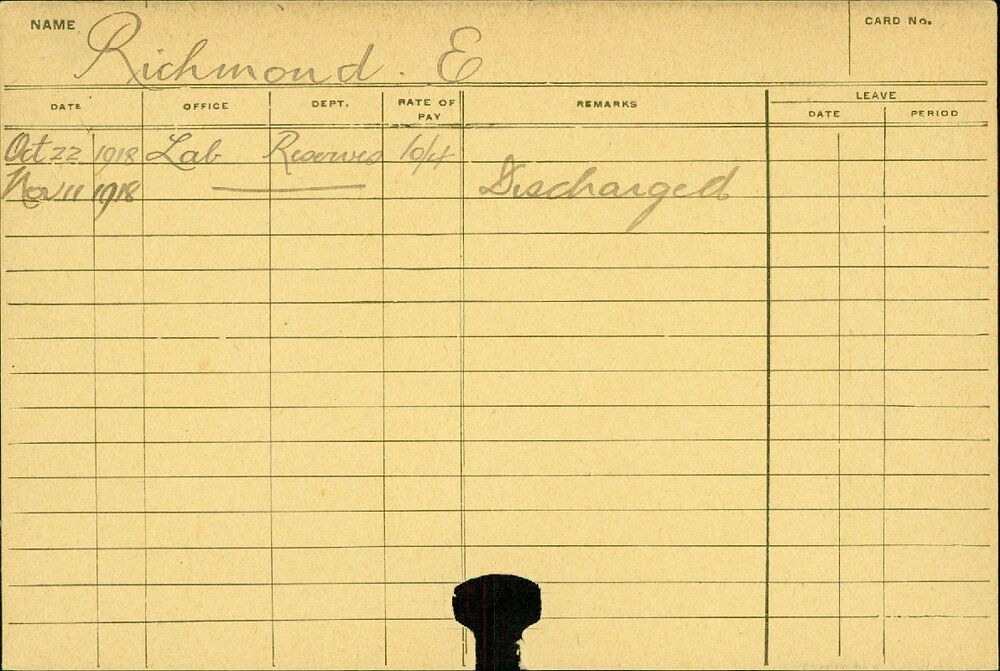 NAME Richmond. E CARD No.
DATE OFFICE DEPT. RATE OF PAY REMARKS LEAVE
DATE PERIOD
Oct 22 1918 Lab Reserves 10/4
Nov 11 1918 Discharged